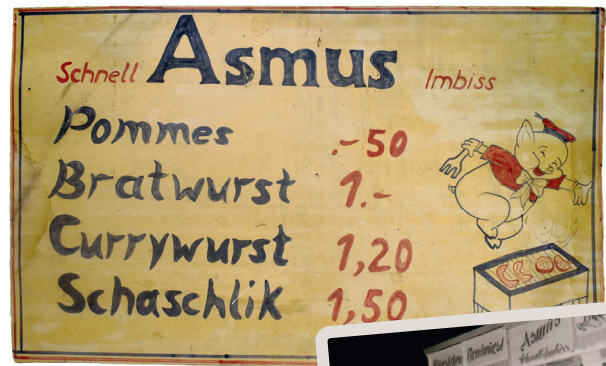 Schnell Asmus Imbiss
Pommes .-50
Bratwurst 1.-
Currywurst 1,20
Schaschlik 1,50
Asmus